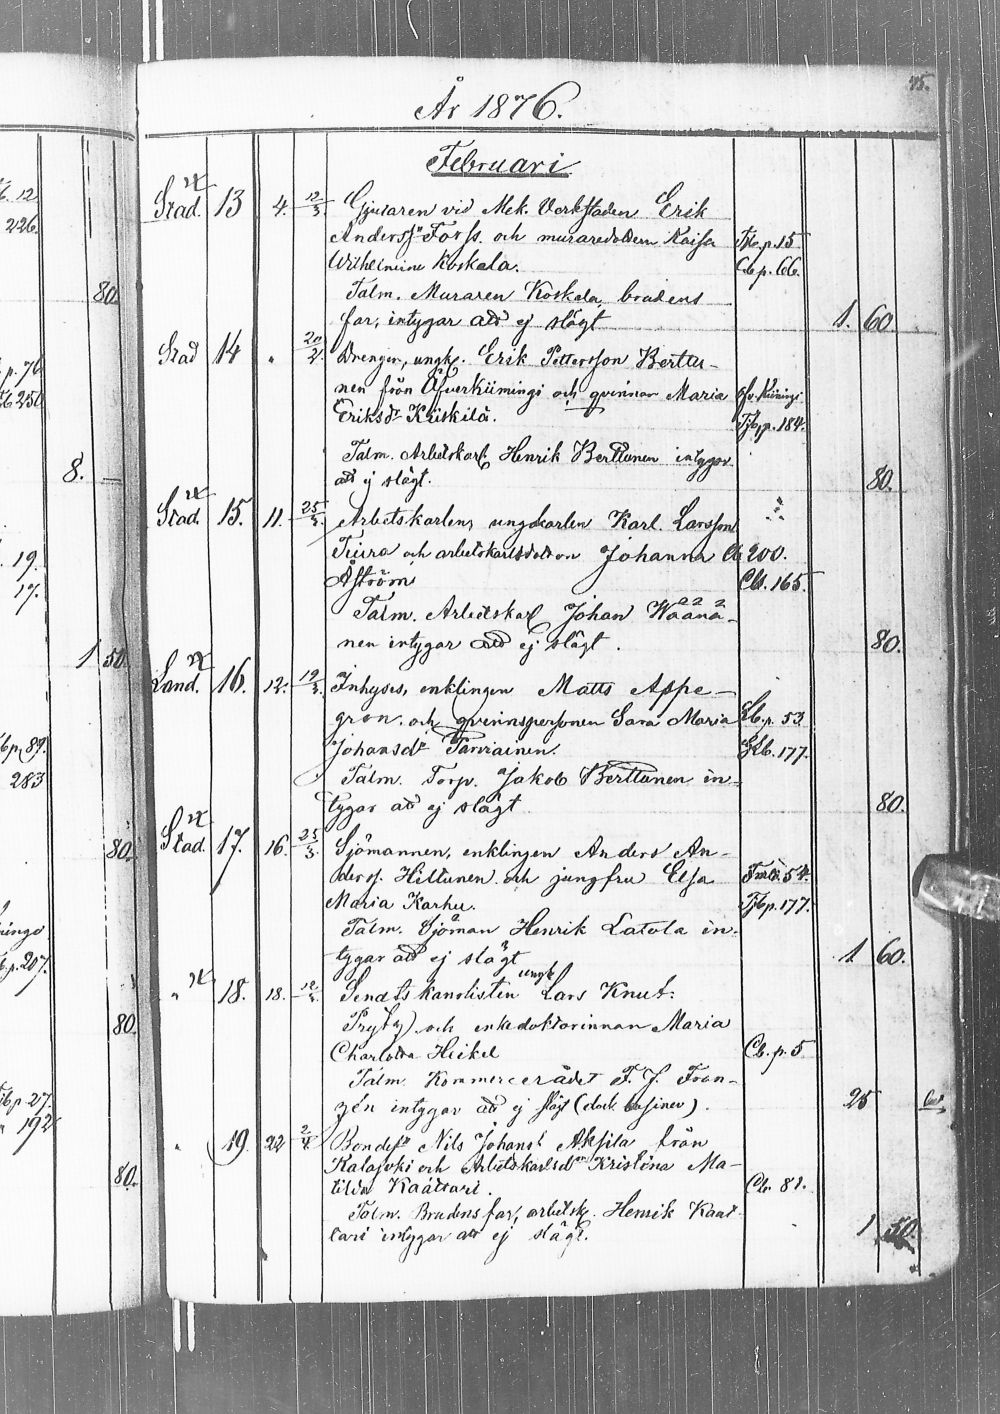 75.
År 1876.
Februari
Stad. 13 4. 12/3. Gjutaren vid Mek. Verkstaden Erik
Anderss:n Forss. och muraredottern Kaisa Tjb. p. 15
Wilhelmina Koskela. Cb p. 66.
Talm. Muraren Koskela, brudens
far, intygar att ej slägt 1. 60
Stad 14 " 20/2. Drengen, ungk. Erik Pettersson Berttu-
nen från Öfverkiimingi och qvinnan Maria Öfv. Kiimingi
Eriksdr Kiiskilä. Tjb. p. 184.
Talm. Arbetskarl. Henrik Berttunen intygar
att ej slägt. 80.
Stad. 15. 11. 25/3. Arbetskarlen, ungkarlen Karl Larsson
Tiira och arbetskarlsdottern Johanna Cb 200.
Åström Cb. 165.
Talm. Arbetskarl Johan Wäänä-
nen intygar att ej slägt. 80.
Land. 16. 12. 19/3. Inhyses, enklingen Matts Appe-
gren och qvinnspersonen Sara Maria Lb. p. 53
Johansdr Parviainen. 177.
Talm. Torp. Jakob Berttunen in-
tygar att ej slägt 80.
Stad. 17. 16. 25/3. Sjömannen, enklingen Anders An-
derss. Hiltunen och jungfru Elsa 54.
Maria Karhu. Tjb p. 177.
Talm. Sjöman Henrik Latola in-
tygar att ej slägt 1 60.
" 18. 18. 12/3. Senatskanslisten ungk Lars Knut
Prytz och enkedoktorinnan Maria
Charlotta Heikel Cb. p. 5
Talm. Kommercerådet F. J. Fran-
zén intygar att ej slägt (dock kusiner). 25
" 19 22 2/4. Bondes. Nils Johanss. Aksila från
Kalajoki och Arbetskarlsd:n Kristina Ma-
tilda Kaattari. Cb. 81.
Talm. Brudens far, arbetsk. Henrik Kaat-
tari intygar att ej slägt. 1 50.
6. 12
226.
80.
p. 76
250
8. —
19.
17.
1 50.
p. 89.
283
80.
p. 207.
80.
p. 27.
192
80.